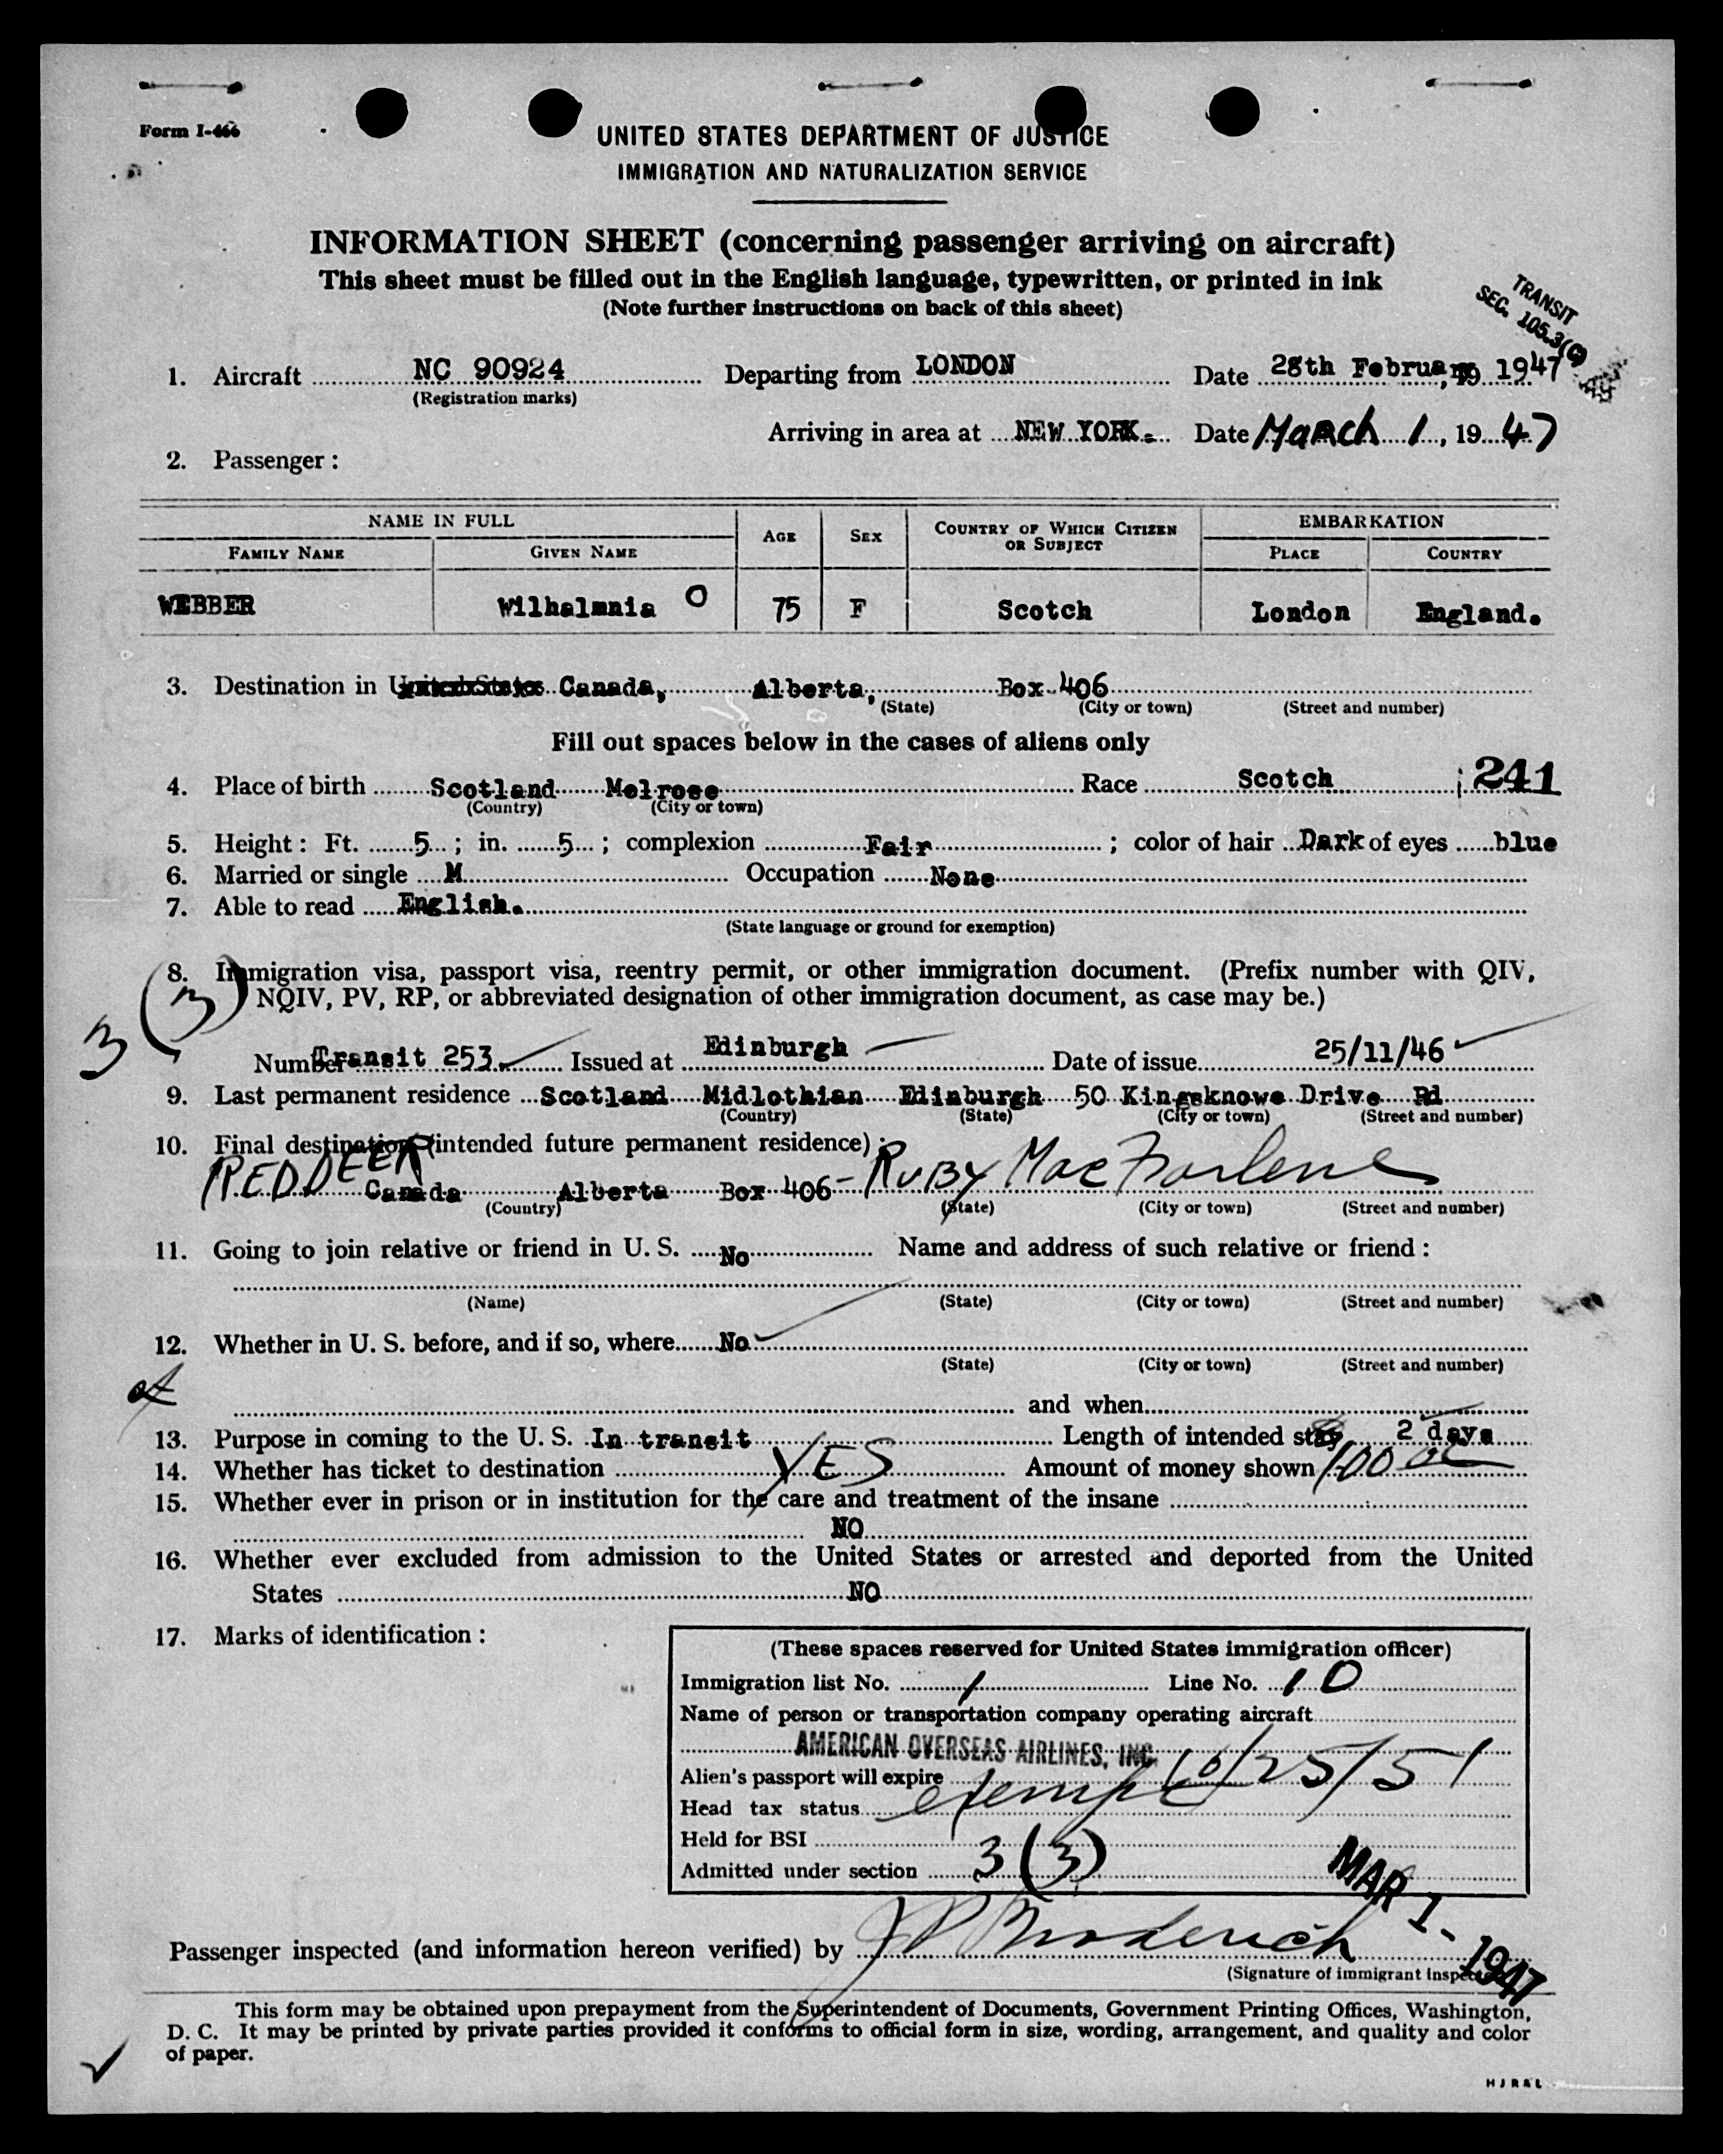 Form I-466
UNITED STATES DEPARTMENT OF JUSTICE
IMMIGRATION AND NATURALIZATION SERVICE
INFORMATION SHEET (concerning passenger arriving on aircraft)
This sheet must be filled out in the English language, typewritten, or printed in ink
(Note further instructions on back of this sheet)
TRANSIT
SEC. 105.3(C)
1. Aircraft NC 90924 Departing from LONDON Date 28th February, 19 1947
(Registration marks)
Arriving in area at NEW YORK. Date MARCH 1, 1947
2. Passenger:
NAME IN FULL AGE SEX COUNTRY OF WHICH CITIZEN OR SUBJECT EMBARKATION
FAMILY NAME GIVEN NAME PLACE COUNTRY
WEBBER Wilhelmnia O 75 F Scotch London England.
3. Destination in United States Canada, Alberta, Box 406
(State) (City or town) (Street and number)
Fill out spaces below in the cases of aliens only
4. Place of birth Scotland Melrose Race Scotch ; 241
(Country) (City or town)
5. Height: Ft. 5 ; in. 5 ; complexion Fair ; color of hair Dark of eyes blue
6. Married or single M Occupation None
7. Able to read English.
(State language or ground for exemption)
8. Immigration visa, passport visa, reentry permit, or other immigration document. (Prefix number with QIV,
3 (3) NQIV, PV, RP, or abbreviated designation of other immigration document, as case may be.)
Number Transit 253 Issued at Edinburgh Date of issue 25/11/46
9. Last permanent residence Scotland Midlothian Edinburgh 50 Kingsknowe Drive Rd
(Country) (State) (City or town) (Street and number)
10. Final destination (intended future permanent residace):
RED DEER Canada Alberta Box 406 - RUBY MacFarlene
(Country) (State) (City or town) (Street and number)
11. Going to join relative or friend in U. S. No Name and address of such relative or friend:
(Name) (State) (City or town) (Street and number)
12. Whether in U. S. before, and if so, where No
(State) (City or town) (Street and number)
and when
13. Purpose in coming to the U. S. In transit Length of intended stay 2 days
14. Whether has ticket to destination YES Amount of money shown 100
15. Whether ever in prison or in institution for the care and treatment of the insane
NO
16. Whether ever excluded from admission to the United States or arrested and deported from the United
States NO
17. Marks of identification:
(These spaces reserved for United States immigration officer)
Immigration list No. 1 Line No. 10
Name of person or transportation company operating aircraft
AMERICAN OVERSEAS AIRLINES, INC.
Alien's passport will expire 10/25/51
Head tax status exempt
Held for BSI
Admitted under section 3 (3)
MAR 1 - 1947
Passenger inspected (and information hereon verified) by
(Signature of immigrant Inspector)
This form may be obtained upon prepayment from the Superintendent of Documents, Government Printing Offices, Washington,
D. C. It may be printed by private parties provided it conforms to official form in size, wording, arrangement, and quality and color
of paper.
HJRAL